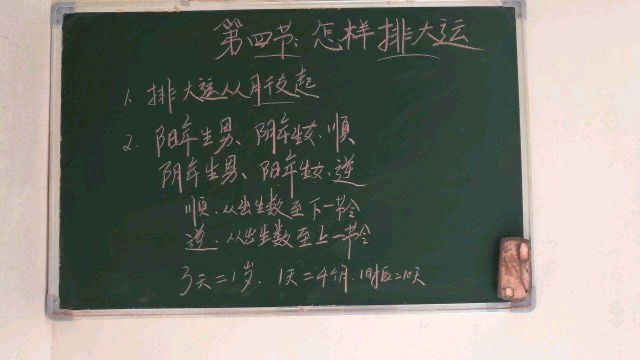 第四节: 怎样排大运
1. 排大运从月干支起
2. 阳年生男、阴年生女、顺
阴年生男、阳年生女、逆
顺、从出生数至下一节令
逆、从出生数至上一节令
3天=1岁、1天=4个月、1时辰=10天